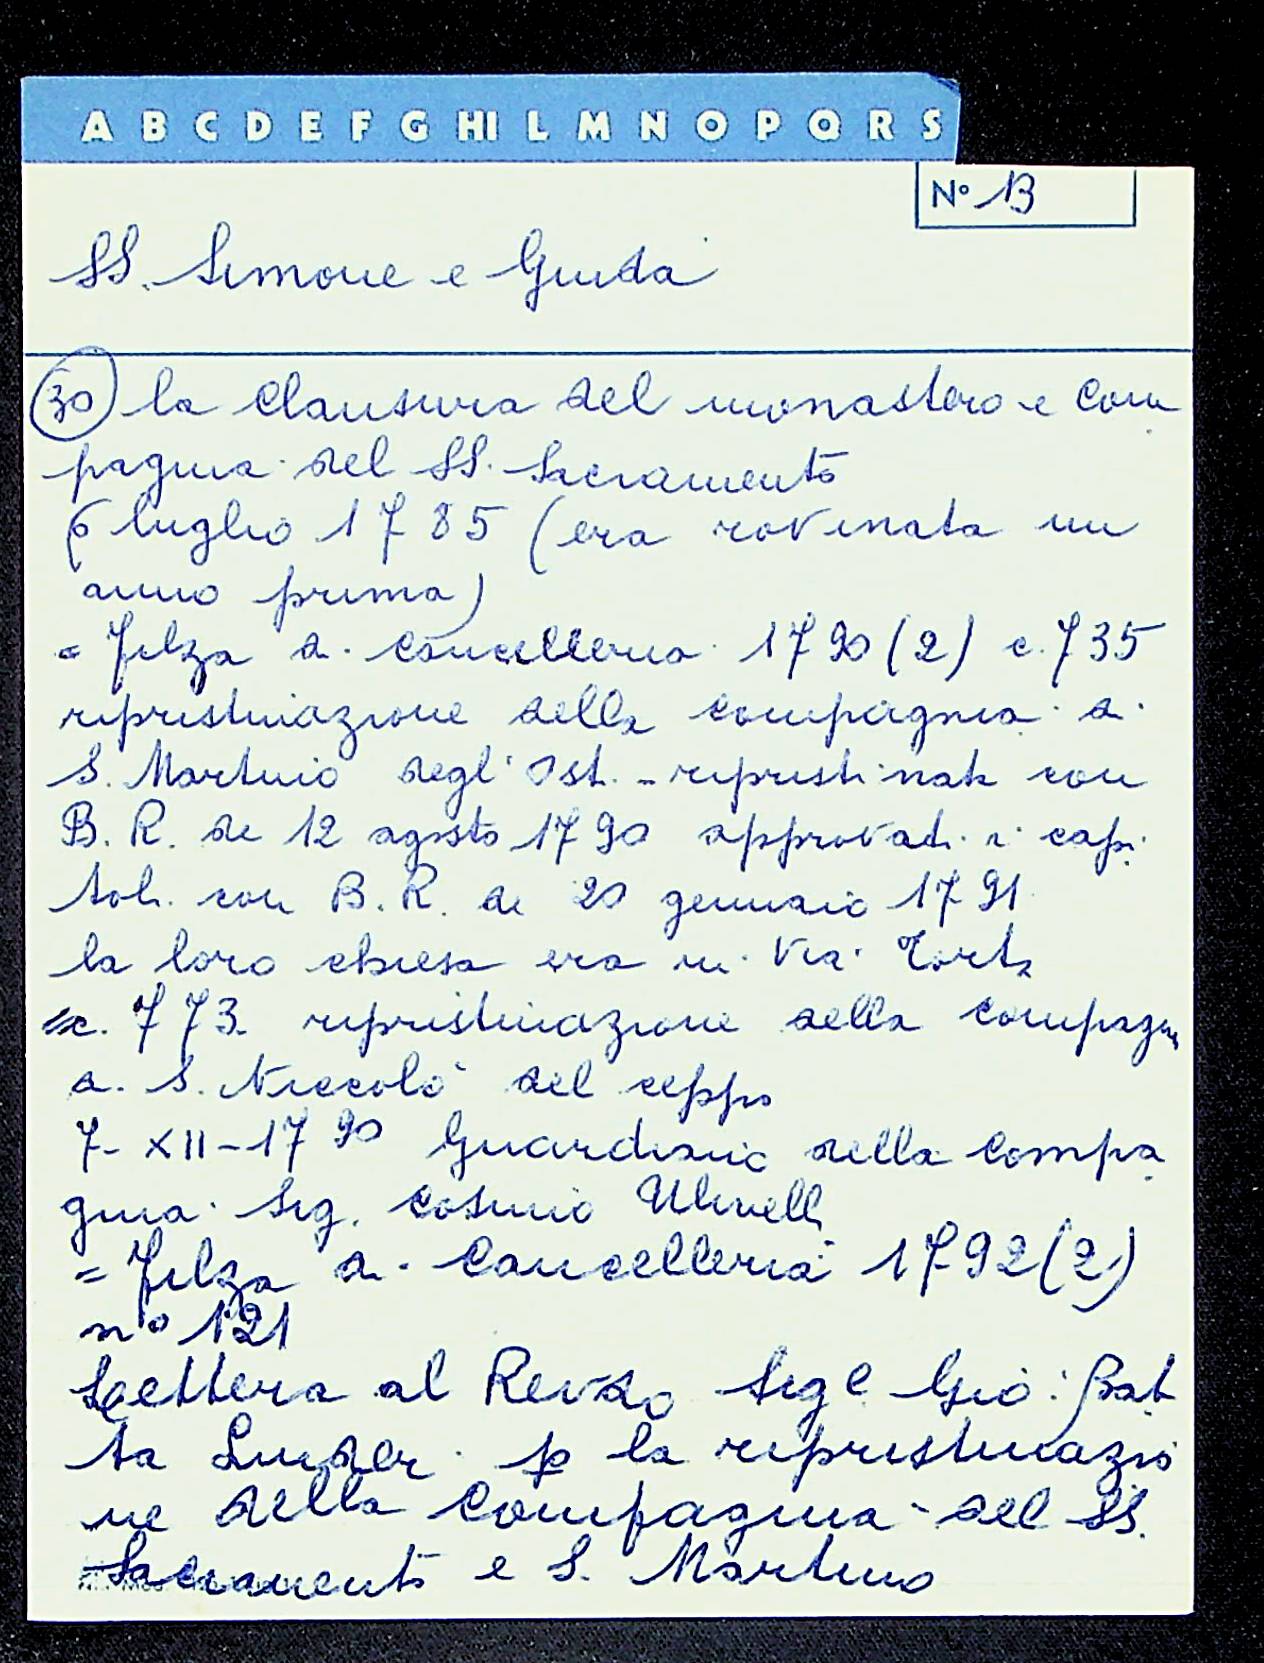 A B C D E F G HI L M N O P Q R S
N° 13
SS. Simone e Giuda
30 la clausura del monastero e com
pagnia del SS. Sacramento
6 luglio 1785 (era rovinata un
anno prima)
= Filza d. Cancelleria 1790 (2) c. 735
ripristinazione della compagnia d.
S. Martino degl' Ost. - ripristinata con
B. R. de 12 agosto 1790 approvati i capi
toli con B. R. de 20 gennaio 1791
la loro chiesa era in Via Torta
c. 773 ripristinazione della compagn
d. S. Niccolò del ceppo
7-XII-1790 Guardiano della compa
gnia Sig. Cosimo Ulivelli
= Filza d. Cancelleria 1792 (2)
n° 121
Lettera al Revdo Sigre Gio: Bat
ta p la ripristinazio
ne della Compagnia del SS.
Sacramento e S. Martino